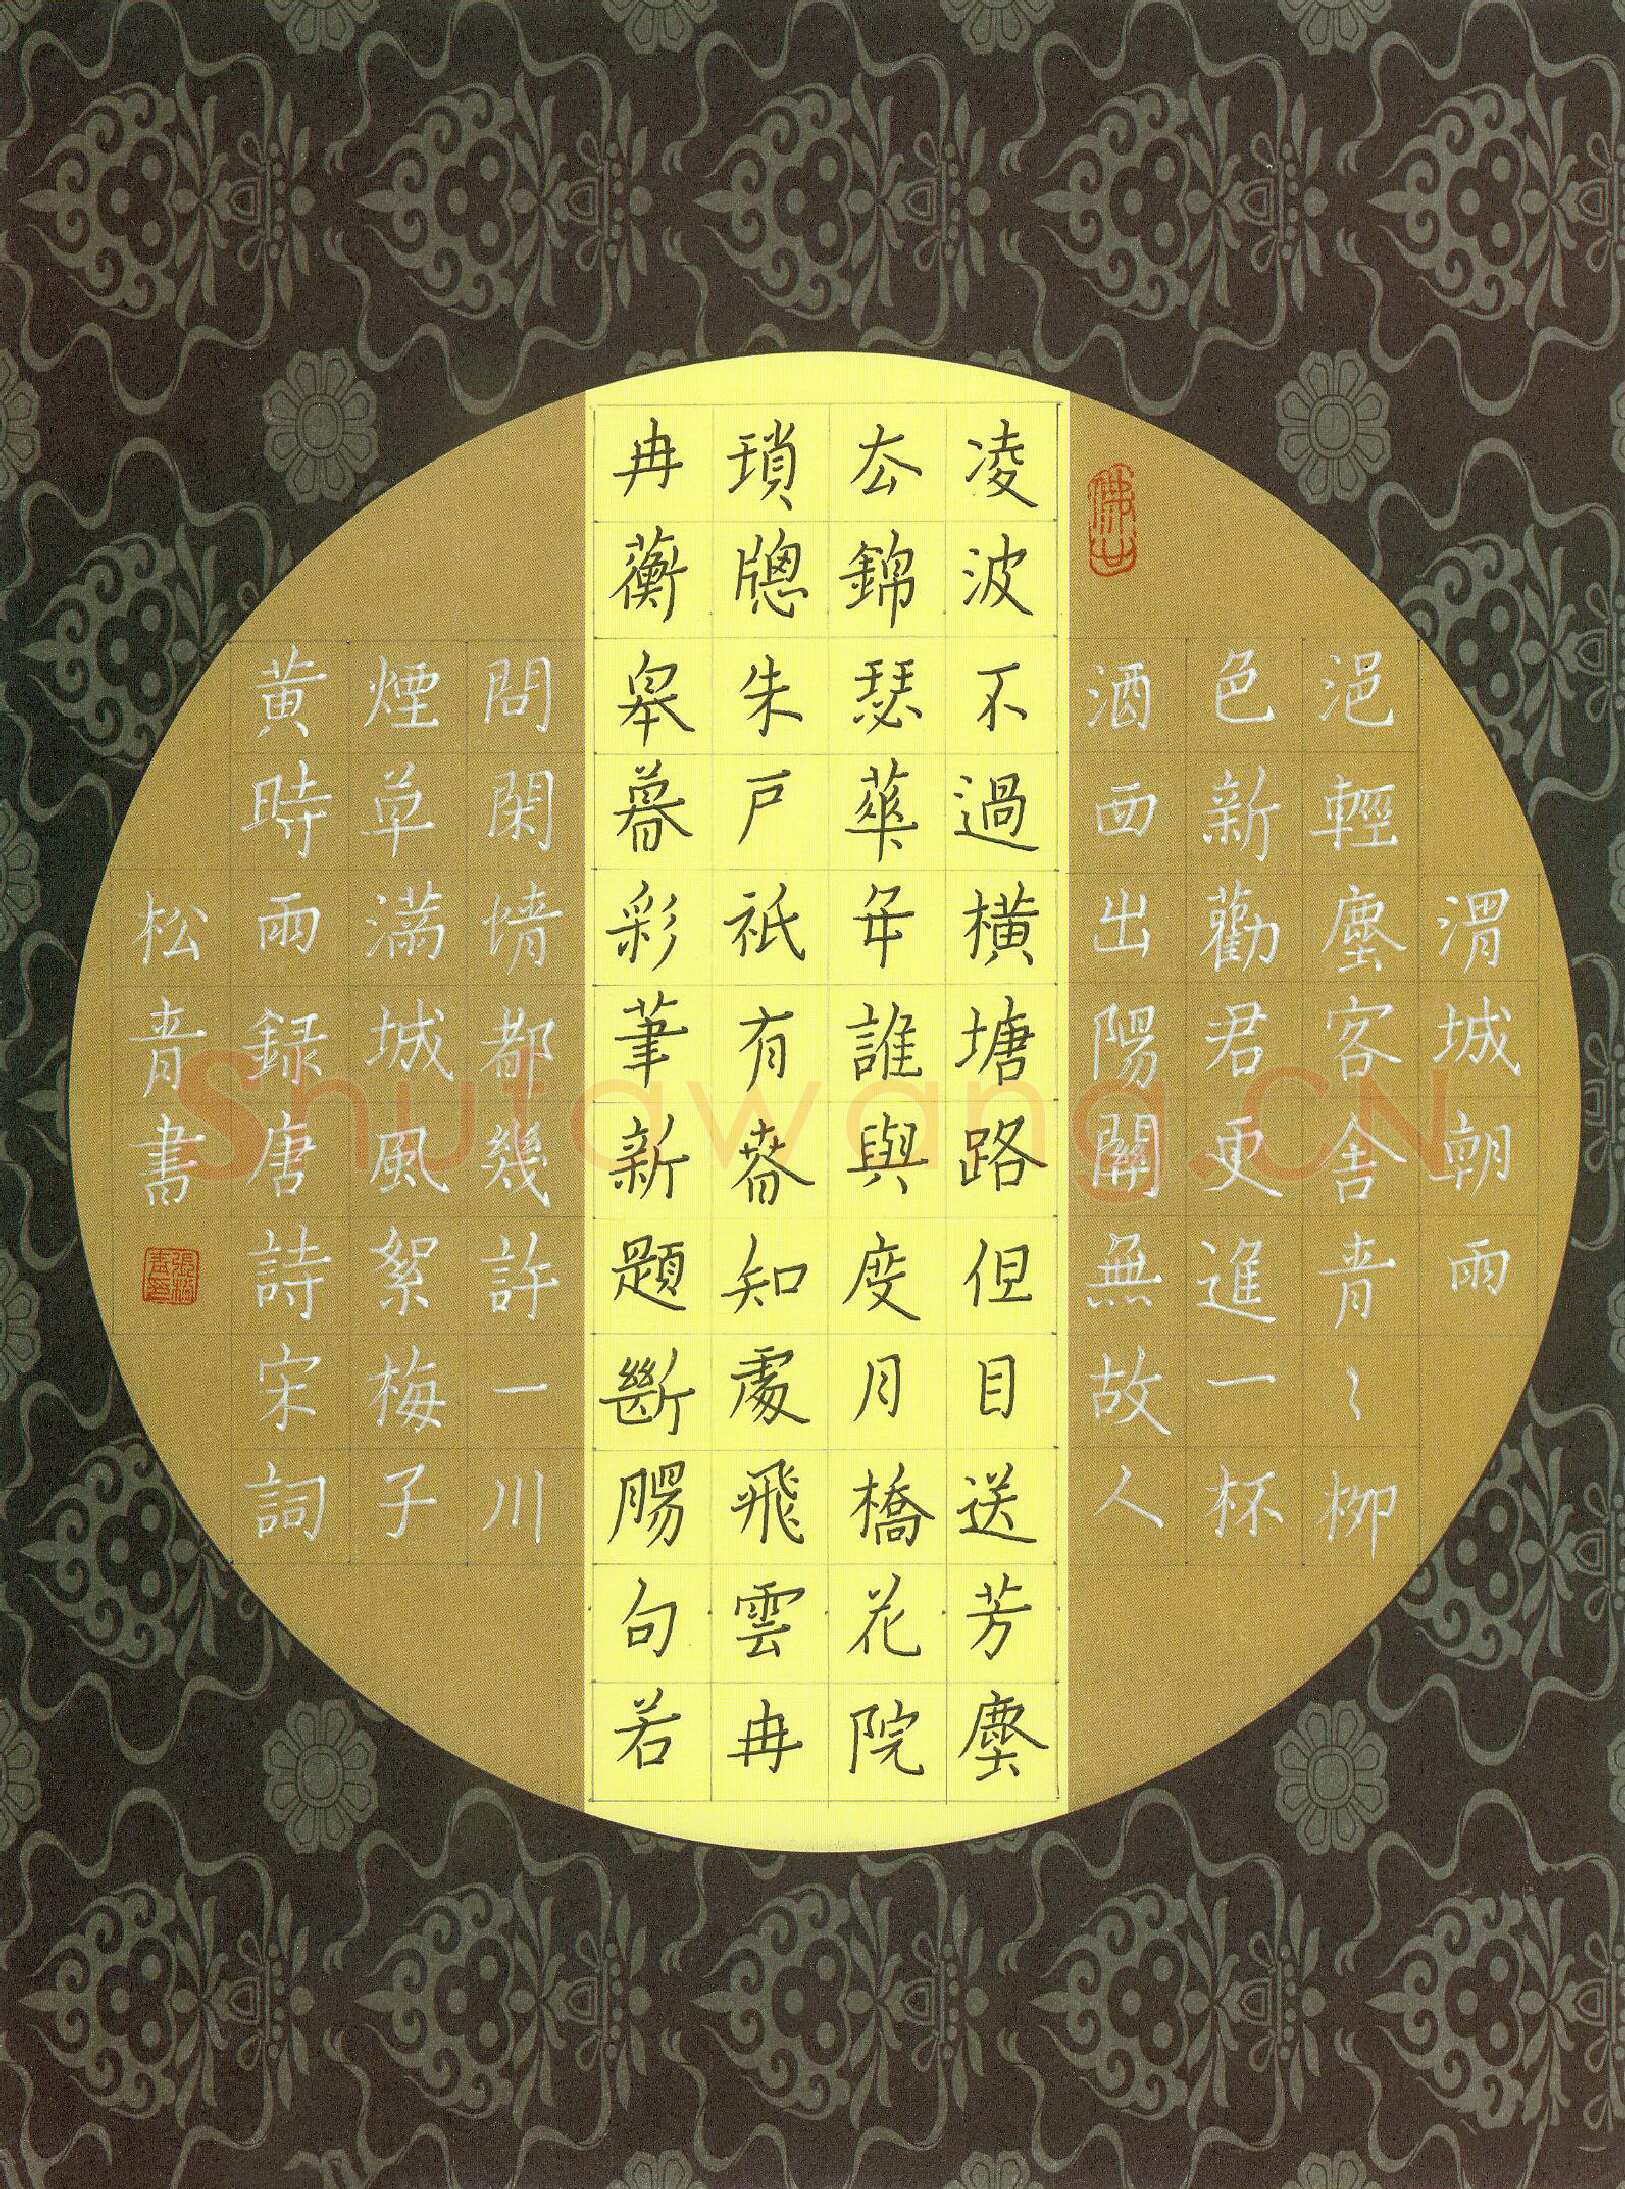 渭城朝雨
浥輕塵客舍青〻柳
色新勸君更進一杯
酒西出陽關無故人
凌波不過橫塘路但目送芳塵
去錦瑟華年誰與度月橋花院
瑣牕朱戶祇有春知處飛雲冉
冉蘅皋暮彩筆新題斷腸句若
問閑情都幾許一川
煙草滿城風絮梅子
黃時雨録唐詩宋詞
松青書
張松青印
Shufawang.CN